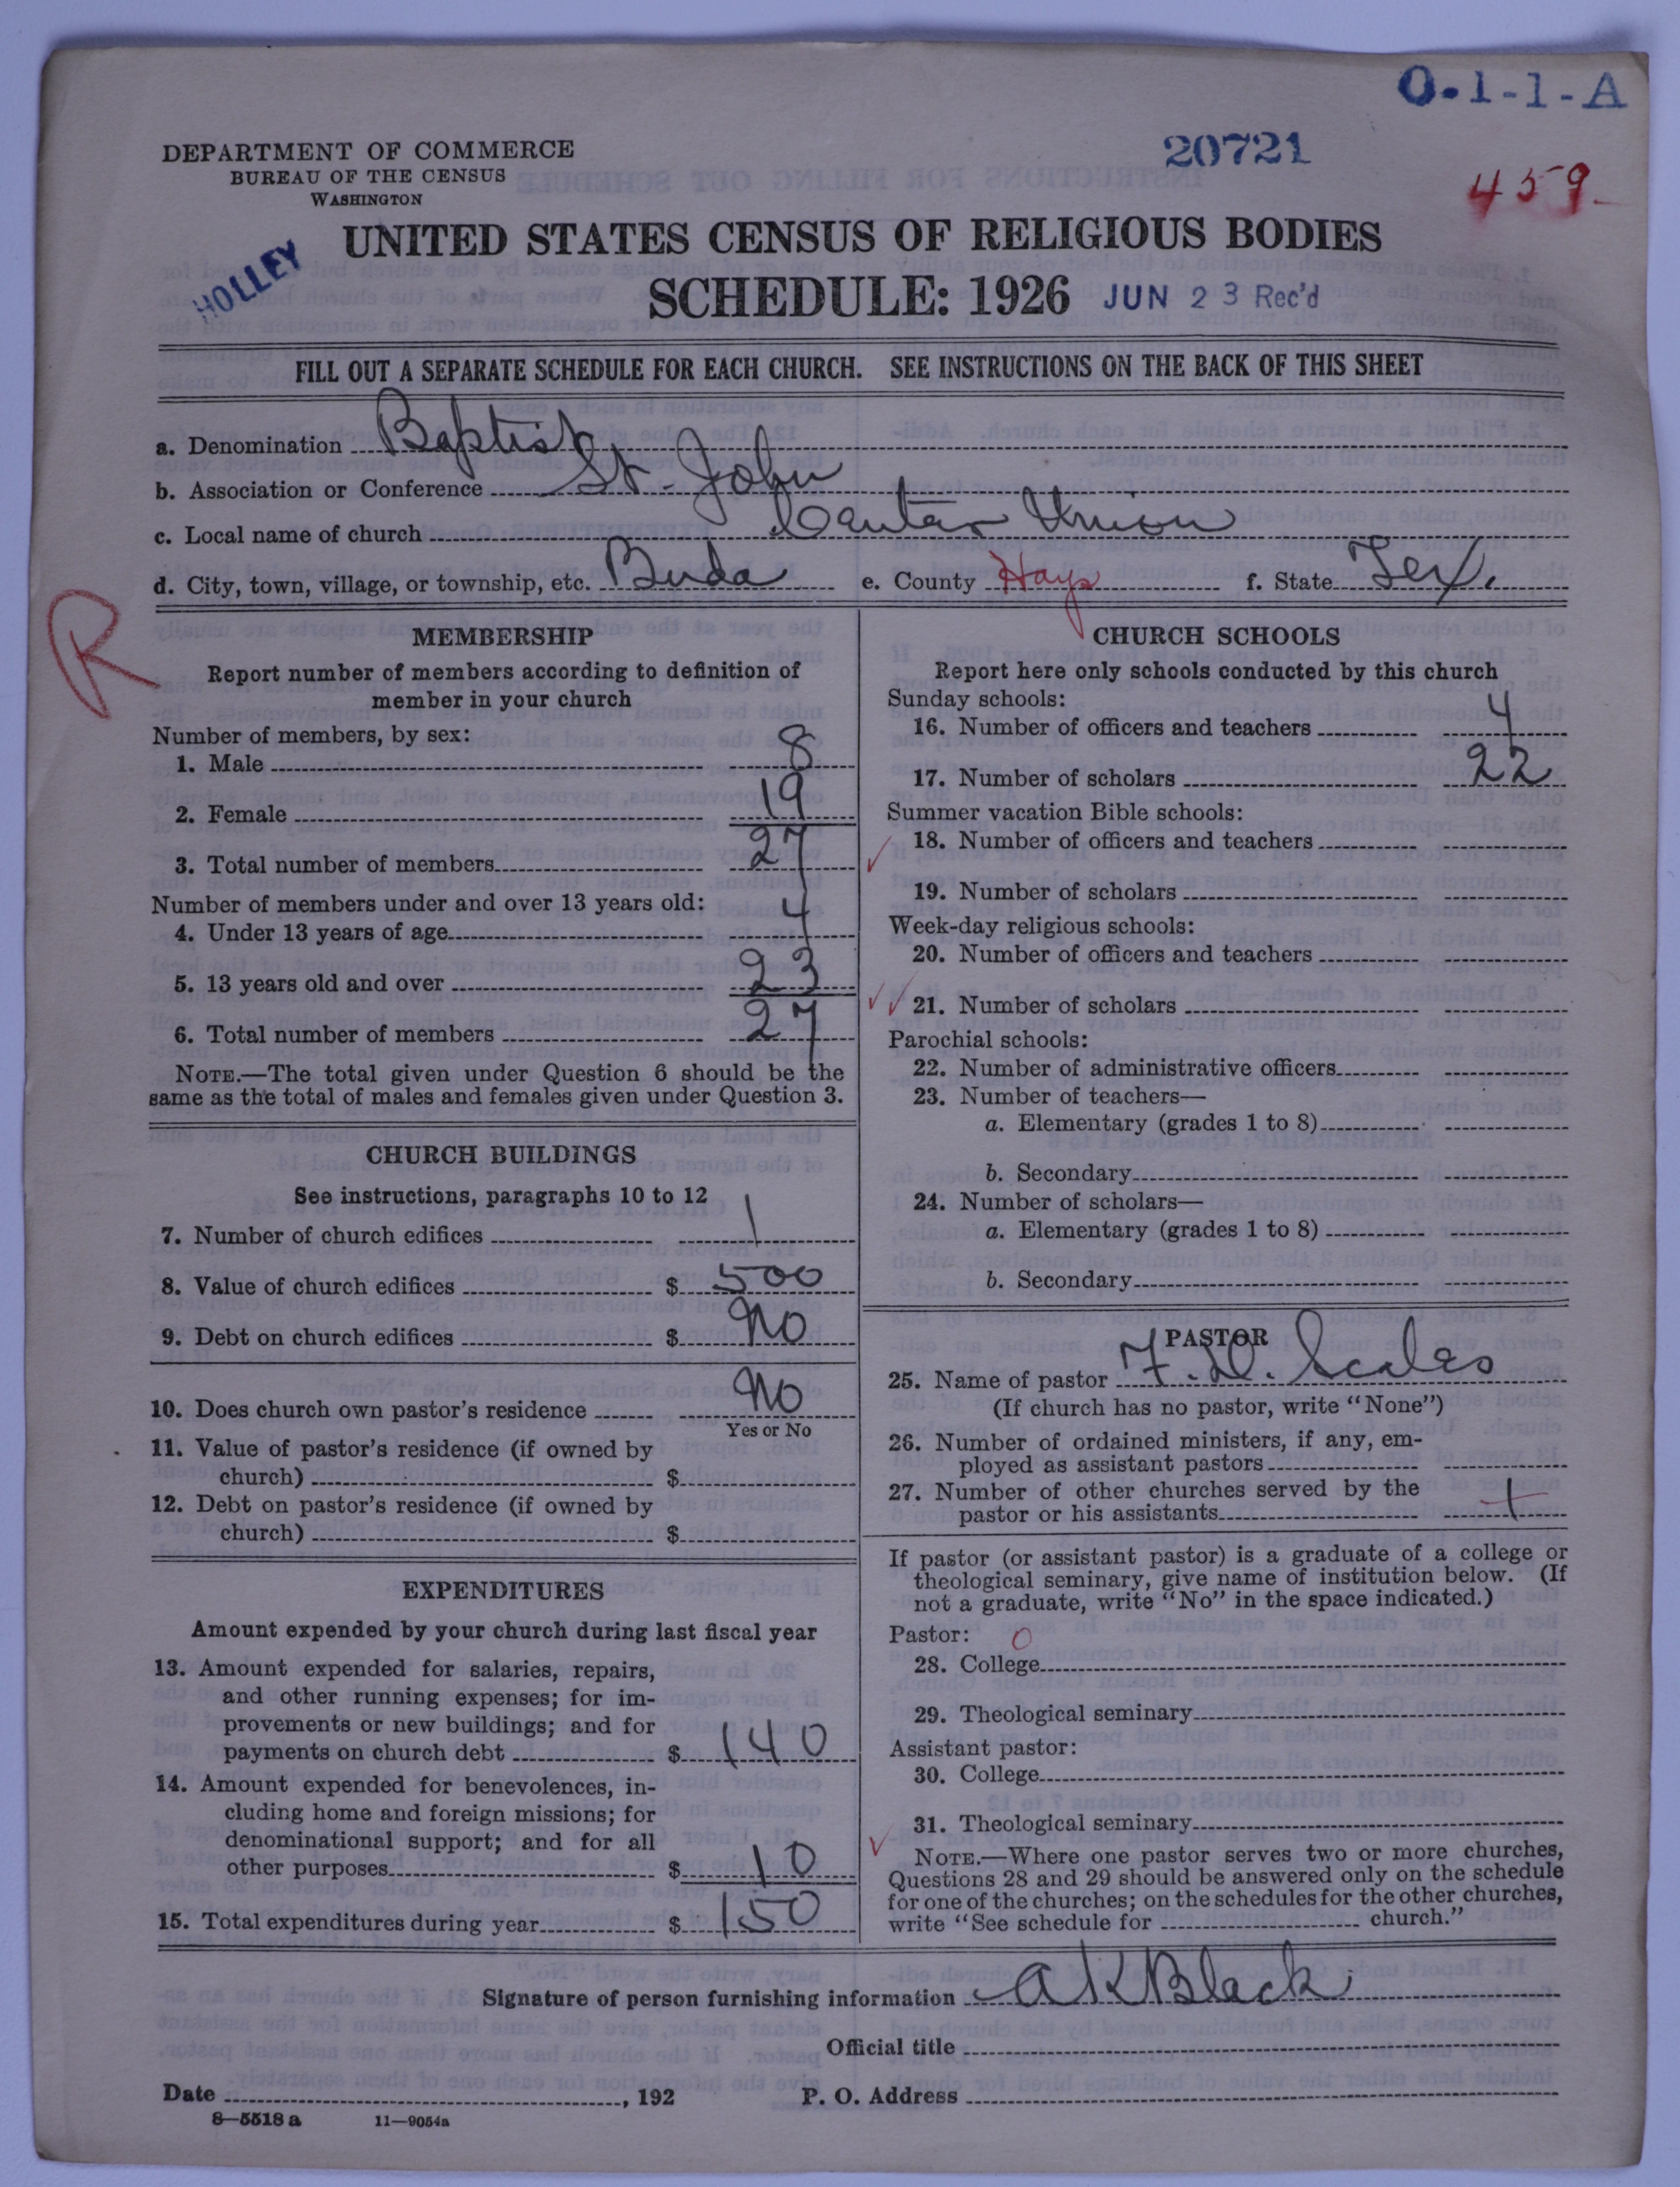 O-1-1-A
DEPARTMENT OF COMMERCE
BUREAU OF THE CENSUS
WASHINGTON
20721
459
HOLLEY
UNITED STATES CENSUS OF RELIGIOUS BODIES
SCHEDULE: 1926
JUN 23 Rec'd
FILL OUT A SEPARATE SCHEDULE FOR EACH CHURCH. SEE INSTRUCTIONS ON THE BACK OF THIS SHEET
a. Denomination Baptist
b. Association or Conference St. John
c. Local name of church Union
d. City, town, village, or township, etc. Buda e. County Hays f. State Tex.
R
MEMBERSHIP
Report number of members according to definition of
member in your church
Number of members, by sex:
1. Male 8
2. Female 19
3. Total number of members 27
Number of members under and over 13 years old:
4. Under 13 years of age 4
5. 13 years old and over 23
6. Total number of members 27
NOTE.—The total given under Question 6 should be the
same as the total of males and females given under Question 3.
CHURCH BUILDINGS
See instructions, paragraphs 10 to 12
7. Number of church edifices 1
8. Value of church edifices $ 500
9. Debt on church edifices $ No
10. Does church own pastor's residence No
Yes or No
11. Value of pastor's residence (if owned by
church) $
12. Debt on pastor's residence (if owned by
church) $
EXPENDITURES
Amount expended by your church during last fiscal year
13. Amount expended for salaries, repairs,
and other running expenses; for im-
provements or new buildings; and for
payments on church debt $ 140
14. Amount expended for benevolences, in-
cluding home and foreign missions; for
denominational support; and for all
other purposes $ 10
15. Total expenditures during year $ 150
CHURCH SCHOOLS
Report here only schools conducted by this church
Sunday schools:
16. Number of officers and teachers 4
17. Number of scholars 22
Summer vacation Bible schools:
18. Number of officers and teachers
19. Number of scholars
Week-day religious schools:
20. Number of officers and teachers
21. Number of scholars
Parochial schools:
22. Number of administrative officers
23. Number of teachers—
a. Elementary (grades 1 to 8)
b. Secondary
24. Number of scholars—
a. Elementary (grades 1 to 8)
b. Secondary
PASTOR
25. Name of pastor F. D. Scales
(If church has no pastor, write "None")
26. Number of ordained ministers, if any, em-
ployed as assistant pastors
27. Number of other churches served by the
pastor or his assistants 1
If pastor (or assistant pastor) is a graduate of a college or
theological seminary, give name of institution below. (If
not a graduate, write "No" in the space indicated.)
Pastor: 0
28. College
29. Theological seminary
Assistant pastor:
30. College
31. Theological seminary
NOTE.—Where one pastor serves two or more churches,
Questions 28 and 29 should be answered only on the schedule
for one of the churches; on the schedules for the other churches,
write "See schedule for church."
Signature of person furnishing information A K Black
Official title
Date , 192 P. O. Address
8—5518 a 11—9054a